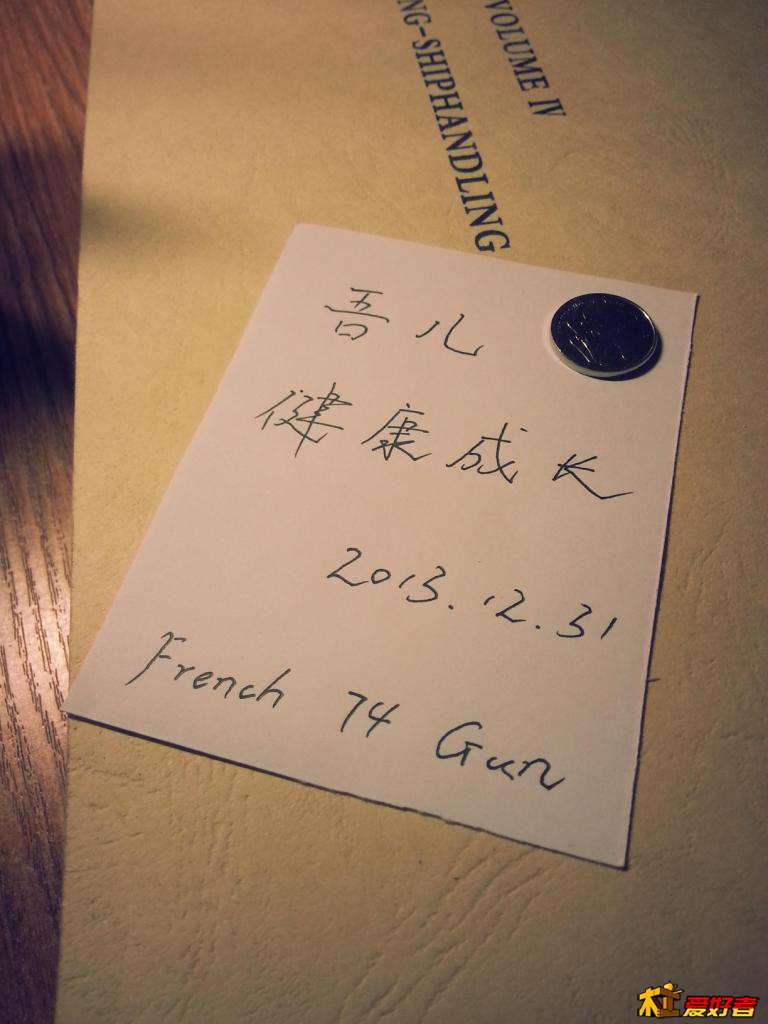 VOLUME IV
NG-SHIPHANDLING
吾儿
健康成长
2013.12.31
French 74 Gun
爱好者